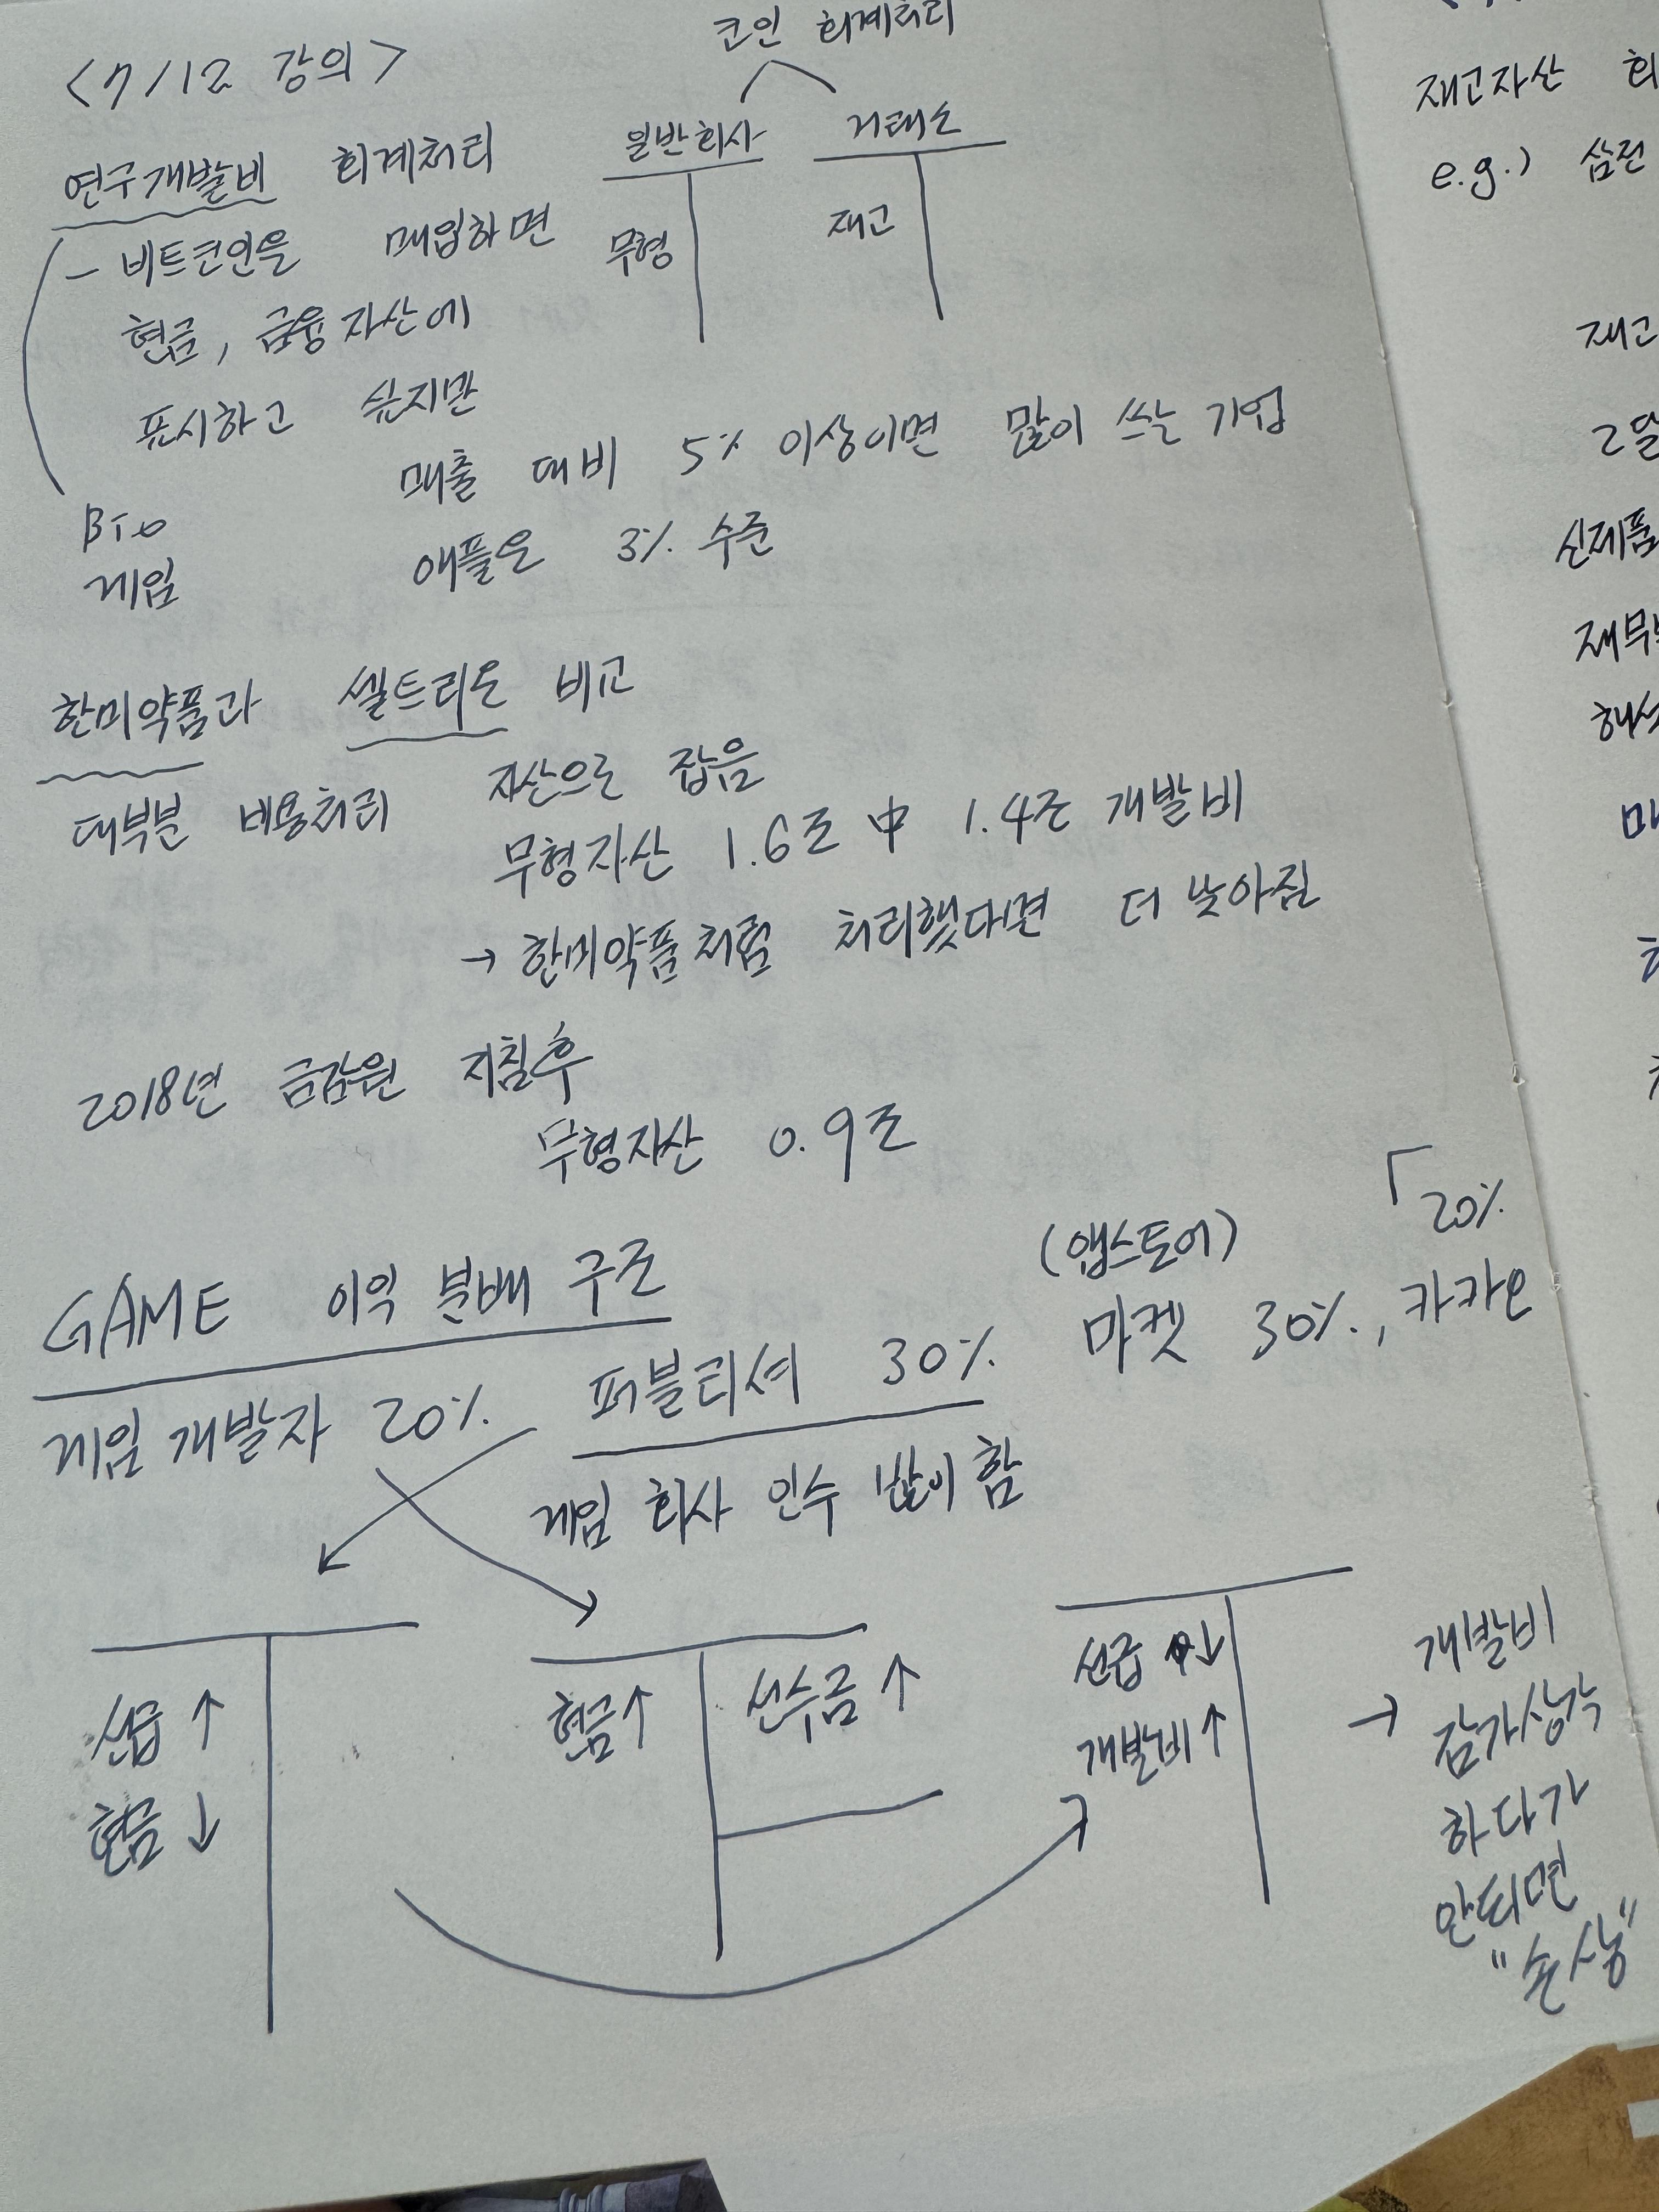 <7/12 강의>
코인 회계처리
일반회사 거래소
무형 재고
연구개발비 회계처리
- 비트코인을 매입하면
현금, 금융자산에
표시하고 싶지만
매출 대비 5% 이상이면 많이 쓰는 기업
애플은 3% 수준
Bio
게임
한미약품과 셀트리온 비교
대부분 비용처리
자산으로 잡음
무형자산 1.6조 中 1.4조 개발비
→ 한미약품처럼 처리했다면 더 낮아짐
2018년 금감원 지침후
무형자산 0.9조
GAME 이익 분배 구조
게임 개발자 20% 퍼블리셔 30% (앱스토어) 마켓 30%, 카카오 20%
게임 회사 인수 많이 함
선급 ↑
현금 ↓
현금 ↑ 선수금 ↑
선급 ↓
개발비 ↑
→ 개발비
감가상각
하다가
안되면
"손상"
재고자산
e.g.) 삼전
재고
2달
신제품